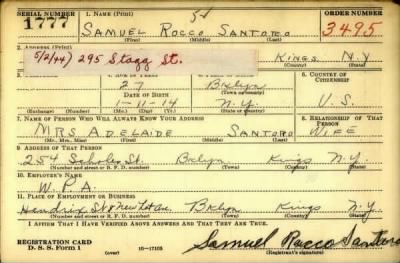 SERIAL NUMBER 1. NAME (Print) 51 ORDER NUMBER
1777 SAMUEL ROCCO SANTORO 3495
(First) (Middle) (Last)
2. ADDRESS (Print)
5/2/44) 295 Stagg St. KINGS N.Y
(County) (State)
27 Bklyn 6. COUNTRY OF CITIZENSHIP
DATE OF BIRTH (Town or county)
1-11-14 N.Y. U.S.
(Exchange) (Number) (Mo.) (Day) (Yr.) (State or country)
7. NAME OF PERSON WHO WILL ALWAYS KNOW YOUR ADDRESS 8. RELATIONSHIP OF THAT PERSON
MRS ADELAIDE SANTORO WIFE
(Mr., Mrs., Miss) (First) (Middle) (Last)
9. ADDRESS OF THAT PERSON
254 Scholes St. Bklyn Kings N.Y.
(Number and street or R. F. D. number) (Town) (County) (State)
10. EMPLOYER'S NAME
W.P.A.
11. PLACE OF EMPLOYMENT OR BUSINESS
Hendrix St & New Lot Ave. Bklyn Kings N.Y.
(Number and street or R. F. D. number) (Town) (County) (State)
I AFFIRM THAT I HAVE VERIFIED ABOVE ANSWERS AND THAT THEY ARE TRUE.
REGISTRATION CARD
D. S. S. Form 1 (over) 16-17105 Samuel Rocco Santoro
(Registrant's signature)